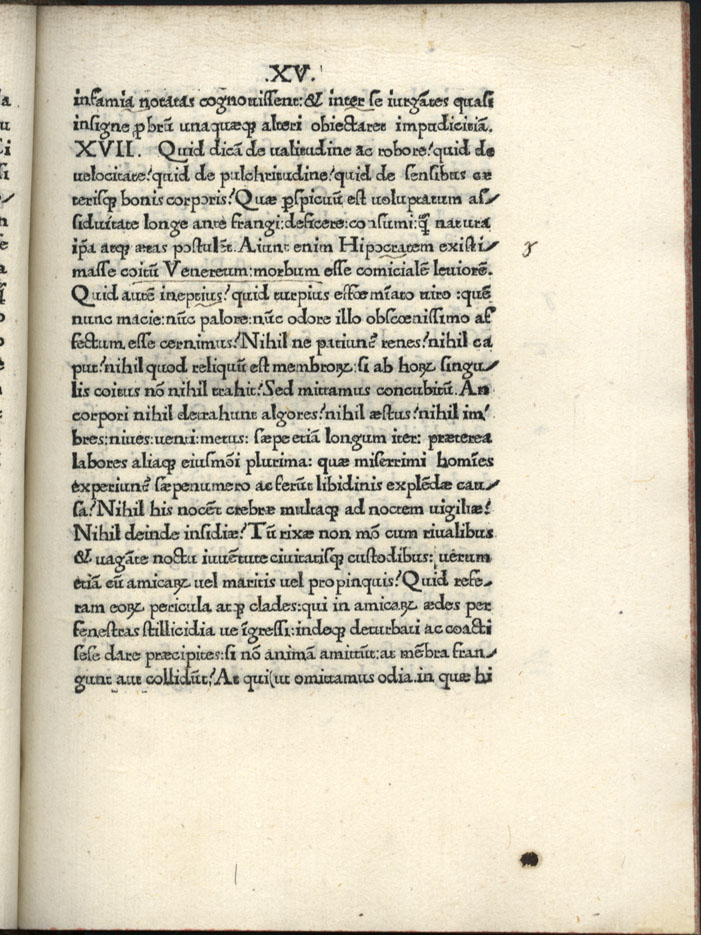 .XV.
infamia notatas cognouissent:& inter se iurgātes quasi
insigne ꝓbrū unaquæqꝫ alteri obiectaret impudicitiā.
XVII. Quid dicā de ualitudine ac robore?quid de
uelocitate?quid de pulchritudine?quid de sensibus cæ
terisqꝫ bonis corporis?Quæ ꝑspicuū est uoluptatum as⸗
siduitate longe ante frangi:deficere:consumi:ꝙ̄ natura
ip̄a atqꝫ ætas postulēt.Aiunt enim Hipocratem existi⸗
masse coitū Venereum:morbum esse comicialē leuiorē.
Quid autē ineptius?quid turpius effœmīato uiro :quē
nunc macie:nūc palore:nūc odore illo obscœnissimo af
fectum esse cernimus?Nihil ne patiunt᷑ renes?nihil ca
put?nihil quod reliquū est membroꝝ:si ab hoꝝ singu⸗
lis coitus nō nihil trahit?Sed mittamus concubitū.An
corpori nihil detrahunt algores?nihil æstus?nihil im⸗
bres:niues:uenti:metus: sæpe etiā longum iter: præterea
labores aliaqꝫ eiusmōi plurima: quæ miserrimi homīes
experiunt᷑ sæpenumero ac ferūt libidinis explēdæ cau⸗
sa?Nihil his nocēt crebræ multæqꝫ ad noctem uigiliæ?
Nihil deinde insidiæ?Tū rixæ non mō cum riualibus
& uagāte noctu iuuētute ciuitatisqꝫ custodibus: uerum
etiā cū amicaꝝ uel maritis uel propinquis?Quid refe⸗
ram eoꝝ pericula atqꝫ clades:qui in amicaꝝ ædes per
fenestras stillicidia ue īgressi:indeqꝫ deturbati ac coacti
sese dare præcipites:si nō animā amittūt:at mēbra fran⸗
gunt aut collidūt?At qui(ut omittamus odia.in quæ hi